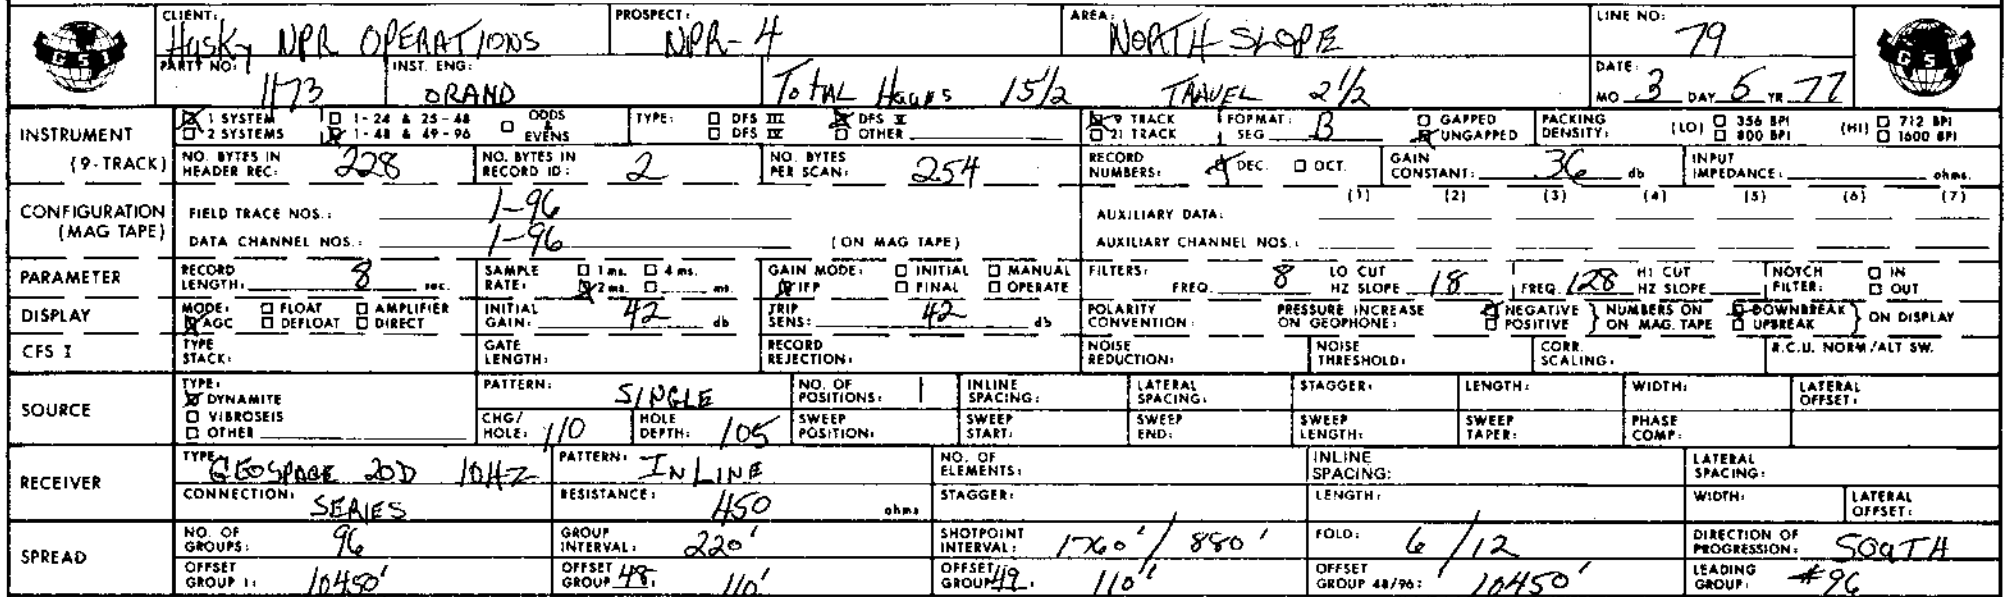 CLIENT: Husky NPR OPERATIONS PROSPECT: NPR-4 AREA: NORTH SLOPE LINE NO: 79
GSI GSI
PARTY NO: 1173 INST. ENG: ORAND Total Hours 15 1/2 TRAVEL 2 1/2 DATE: MO. 3 DAY 5 YR. 77
INSTRUMENT (9-TRACK)
☒ 1 SYSTEM ☐ 1-24 & 25-48 ☐ ODDS & EVENS TYPE: ☐ DFS III ☒ DFS V ☒ 9 TRACK FORMAT: SEG B ☐ GAPPED PACKING DENSITY: (LO) ☐ 356 BPI (HI) ☐ 712 BPI
☐ 2 SYSTEMS ☒ 1-48 & 49-96 ☐ DFS IV ☐ OTHER ☐ 21 TRACK ☒ UNGAPPED ☐ 800 BPI ☐ 1600 BPI
NO. BYTES IN HEADER REC: 228 NO. BYTES IN RECORD ID: 2 NO. BYTES PER SCAN: 254 RECORD NUMBERS: ☒ DEC. ☐ OCT. GAIN CONSTANT: 36 db INPUT IMPEDANCE: ohms.
CONFIGURATION (MAG TAPE)
(1) (2) (3) (4) (5) (6) (7)
FIELD TRACE NOS.: 1-96 AUXILIARY DATA:
DATA CHANNEL NOS.: 1-96 (ON MAG TAPE) AUXILIARY CHANNEL NOS.:
PARAMETER RECORD LENGTH: 8 sec. SAMPLE RATE: ☐ 1 ms. ☐ 4 ms. ☒ 2 ms. ☐ ms. GAIN MODE: ☐ INITIAL ☐ MANUAL ☒ IFP ☐ FINAL ☐ OPERATE FILTERS: FREQ. 8 LO CUT HZ SLOPE 18 FREQ. 128 HI CUT HZ SLOPE NOTCH FILTER: ☐ IN ☐ OUT
DISPLAY MODE: ☐ FLOAT ☐ AMPLIFIER ☒ AGC ☐ DEFLOAT ☐ DIRECT INITIAL GAIN: 42 db TRIP SENS: 42 db POLARITY CONVENTION: PRESSURE INCREASE ON GEOPHONE: ☒ NEGATIVE ☐ POSITIVE } NUMBERS ON ON MAG. TAPE ☒ DOWNBREAK ☐ UPBREAK } ON DISPLAY
CFS I TYPE STACK: GATE LENGTH: RECORD REJECTION: NOISE REDUCTION: NOISE THRESHOLD: CORR. SCALING: R.C.U. NORM/ALT SW.
SOURCE TYPE: ☒ DYNAMITE ☐ VIBROSEIS ☐ OTHER PATTERN: SINGLE NO. OF POSITIONS: 1 INLINE SPACING: LATERAL SPACING: STAGGER: LENGTH: WIDTH: LATERAL OFFSET:
CHG/HOLE: 110 HOLE DEPTH: 105 SWEEP POSITION: SWEEP START: SWEEP END: SWEEP LENGTH: SWEEP TAPER: PHASE COMP:
RECEIVER TYPE: GEOSPACE 20D 10HZ PATTERN: INLINE NO. OF ELEMENTS: INLINE SPACING: LATERAL SPACING:
CONNECTION: SERIES RESISTANCE: 450 ohms STAGGER: LENGTH: WIDTH: LATERAL OFFSET:
SPREAD NO. OF GROUPS: 96 GROUP INTERVAL: 220' SHOTPOINT INTERVAL: 1760' / 880' FOLD: 6/12 DIRECTION OF PROGRESSION: SOUTH
OFFSET GROUP 1: 10450' OFFSET GROUP 48: 110' OFFSET GROUP 49: 110' OFFSET GROUP 48/96: 10450' LEADING GROUP: #96